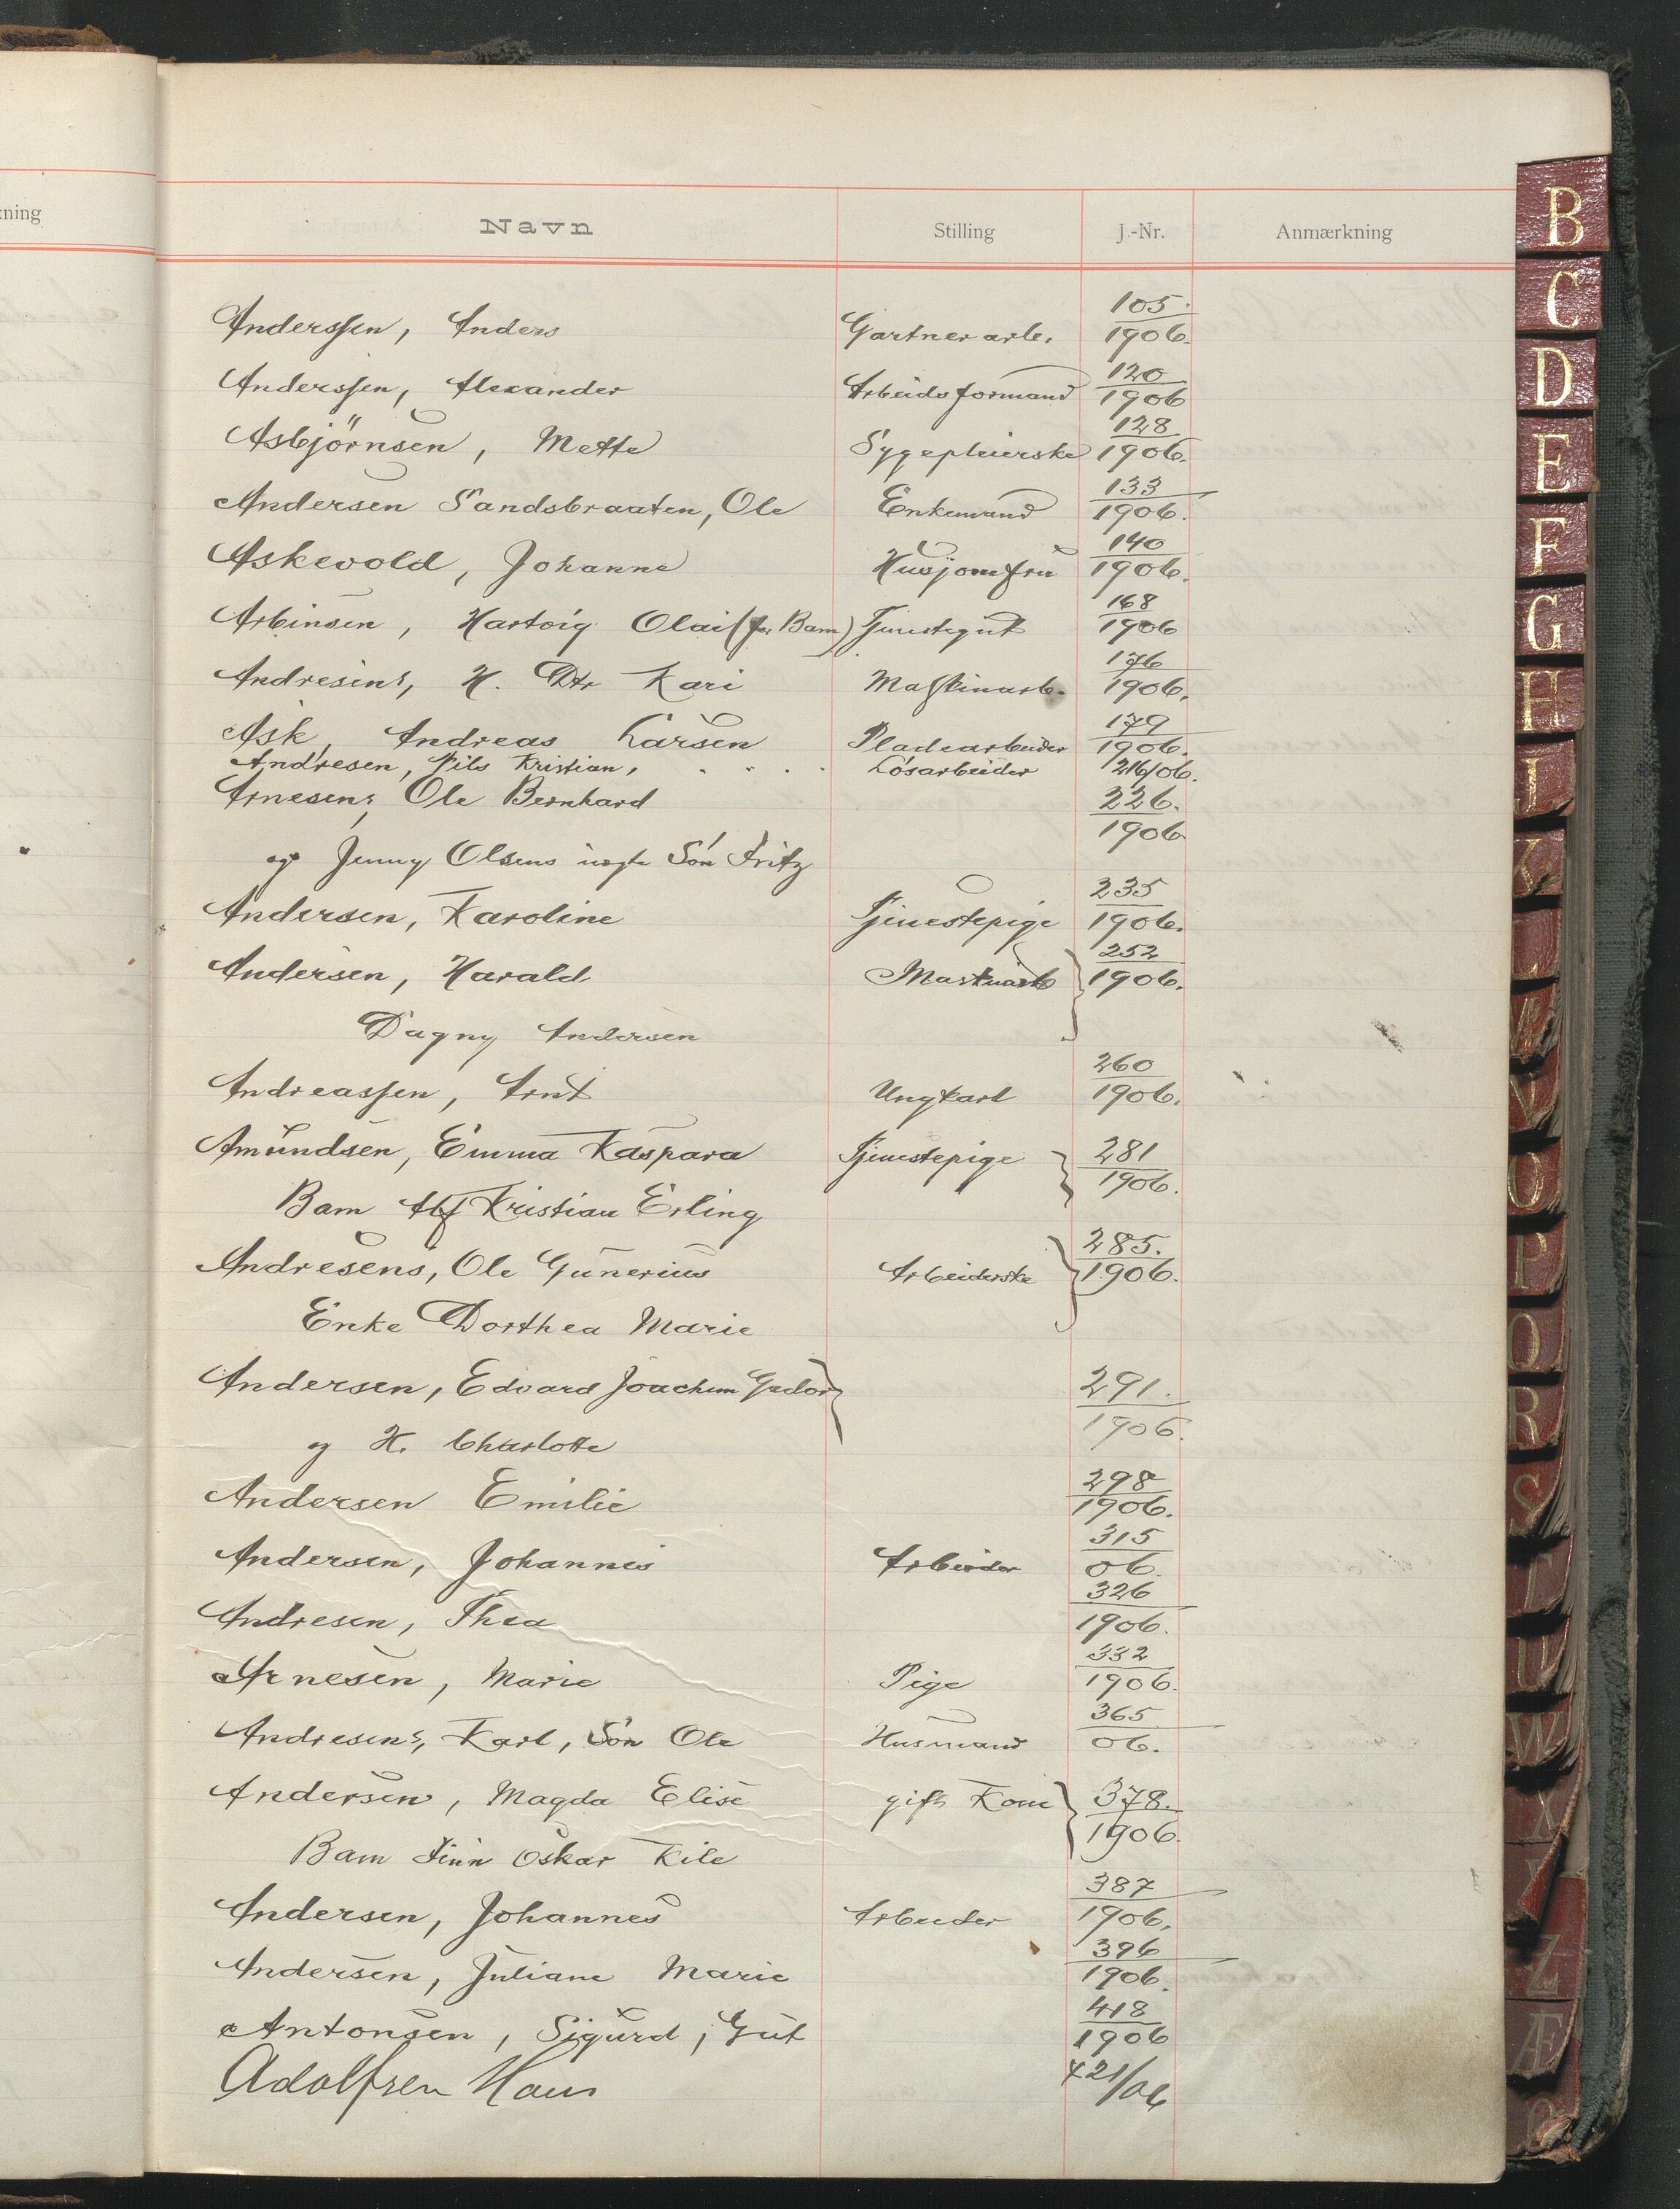 kning
Navn Stilling J.-Nr. Anmærkning
Anderssen, Anders Gartnerarb. 105/1906.
Anderssen, Alexander Arbeidsformand 120/1906
Asbjörnsen, Mette Sygepleierske 128/1906.
Andersen Sandsbraaten, Ole Enkemand 133/1906.
Askevold, Johanne Husjomfru 140/1906.
Arbinsen, Hartvig Olai (for Barn) Tjenestegut 168/1906
Andresens, H. Dtr Kari Maskinarb. 176/1906.
Ask, Andreas Larsen Pladearbeider 179/1906.
Andresen, Nils Kristian, Løsarbeider 216/06.
Arnesens, Ole Bernhard 226./1906
og Jenny Olsens uægte Søn Fritz
Andersen, Karoline Tjenestepige 235/1906.
Andersen, Harald 252/1906.
Dagny Andersen
Andreassen, Arnt Ungkarl 260/1906.
Amundsen, Emma Kaspara Tjenestepige 281/1906.
Barn Alf Kristian Erling
Andresens, Ole Gunerius Arbeiderske 285./1906.
Enke Dorthea Marie
Andersen, Edvard Joachim 291./1906.
og H. Charlotte
Andersen Emilie 298/1906.
Andersen, Johannes Arbeider 315/06
Andresen, Thea 326/1906.
Arnesen, Marie Pige 332/1906.
Andresens, Karl, Søn Ole Husmand 365/06.
Andersen, Magda Elise gift Kone 378./1906.
Barn Finn Oskar Kile
Andersen, Johannes Arbeider 387/1906.
Andersen, Juliane Marie 396/1906.
Antonsen, Sigurd, Gut 418/1906
Adolfsen Hans 421/06
B
C
D
E
F
G
H
J
K
L
M
N
O
P
Q
R
S
T
U
W
X
Y
Z
Æ
Ø